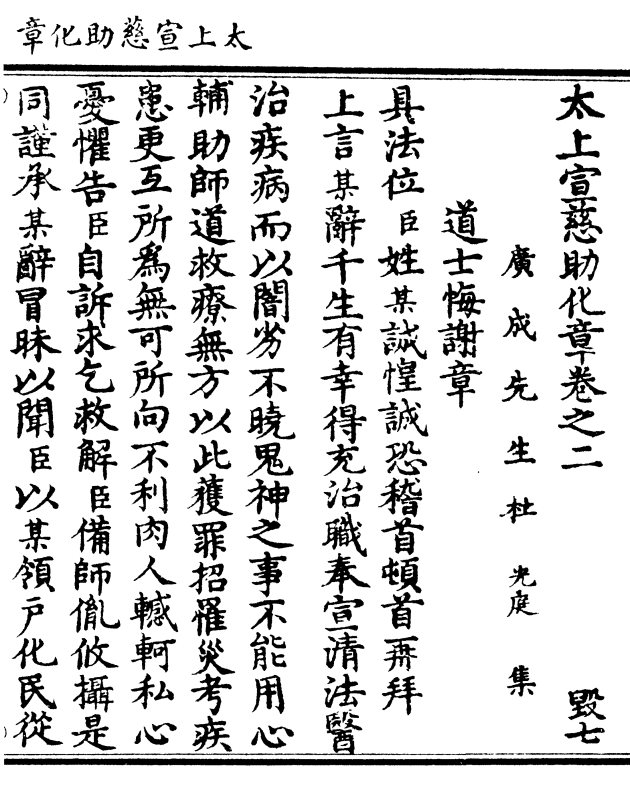 太上宣慈助化章
太上宣慈助化章卷之二 毀七
廣成先生杜光庭集
道士悔謝章
具法位臣姓某誠惶誠恐稽首頓首再拜
上言某辭千生有幸得充治職奉宣清法醫
治疾病而以闇劣不曉鬼神之事不能用心
輔助師道救療無方以此獲罪招罹災考疾
患更互所為無可所向不利肉人轗軻私心
憂懼告臣自訴求乞救解臣備師胤攸攝是
同謹承某辭冒昧以聞臣以某領戶化民從